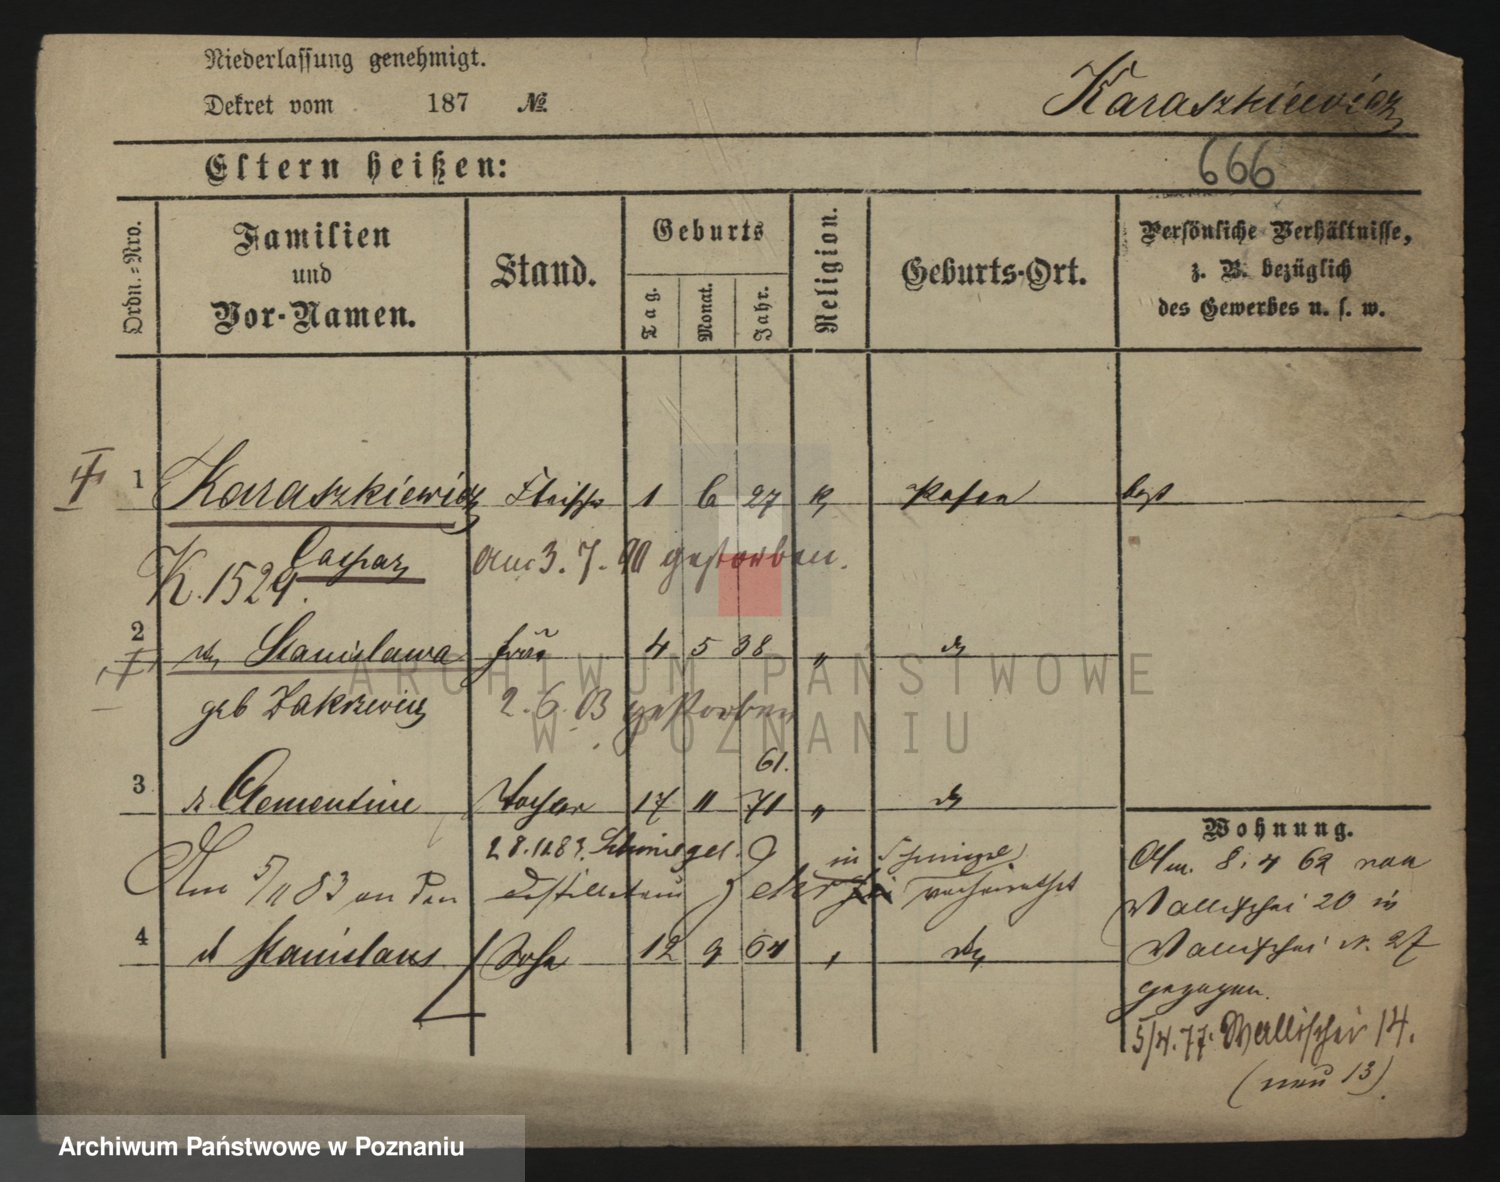 Niederlassung genehmigt.
Dekret vom 187 №
Karaszkiewicz
Eltern heißen:
666
Ordn.=Nro.
Familien
und
Vor-Namen.
Stand.
Geburts
Tag.
Monat.
Jahr.
Religion.
Geburts-Ort.
Persönliche Verhältnisse,
z. B. bezüglich
des Gewerbes u. s. w.
1 Karaszkiewicz Fleischer 1 6 27 K Posen
Caspar am 3. 7. 90 gestorben.
K. 1524.
2 Stanislawa Frau 4 5 38 " do
geb Zakrzewicz 2. 6. 03 gestorben
61.
3 Clementine Tochter 17 11 71 " do
28.11.83. Schmiegel. in Schmiegel
Am 5/11 83 an den verheirathet
4 Stanislaus Sohn 12 9 64 " do
Wohnung.
Am. 8. 4 62 von
Wallischei 20 in
Wallischei N. 27
gezogen.
5/4. 77. Wallischei 14.
(neu 13).
ARCHIWUM PAŃSTWOWE
W POZNANIU
Archiwum Państwowe w Poznaniu